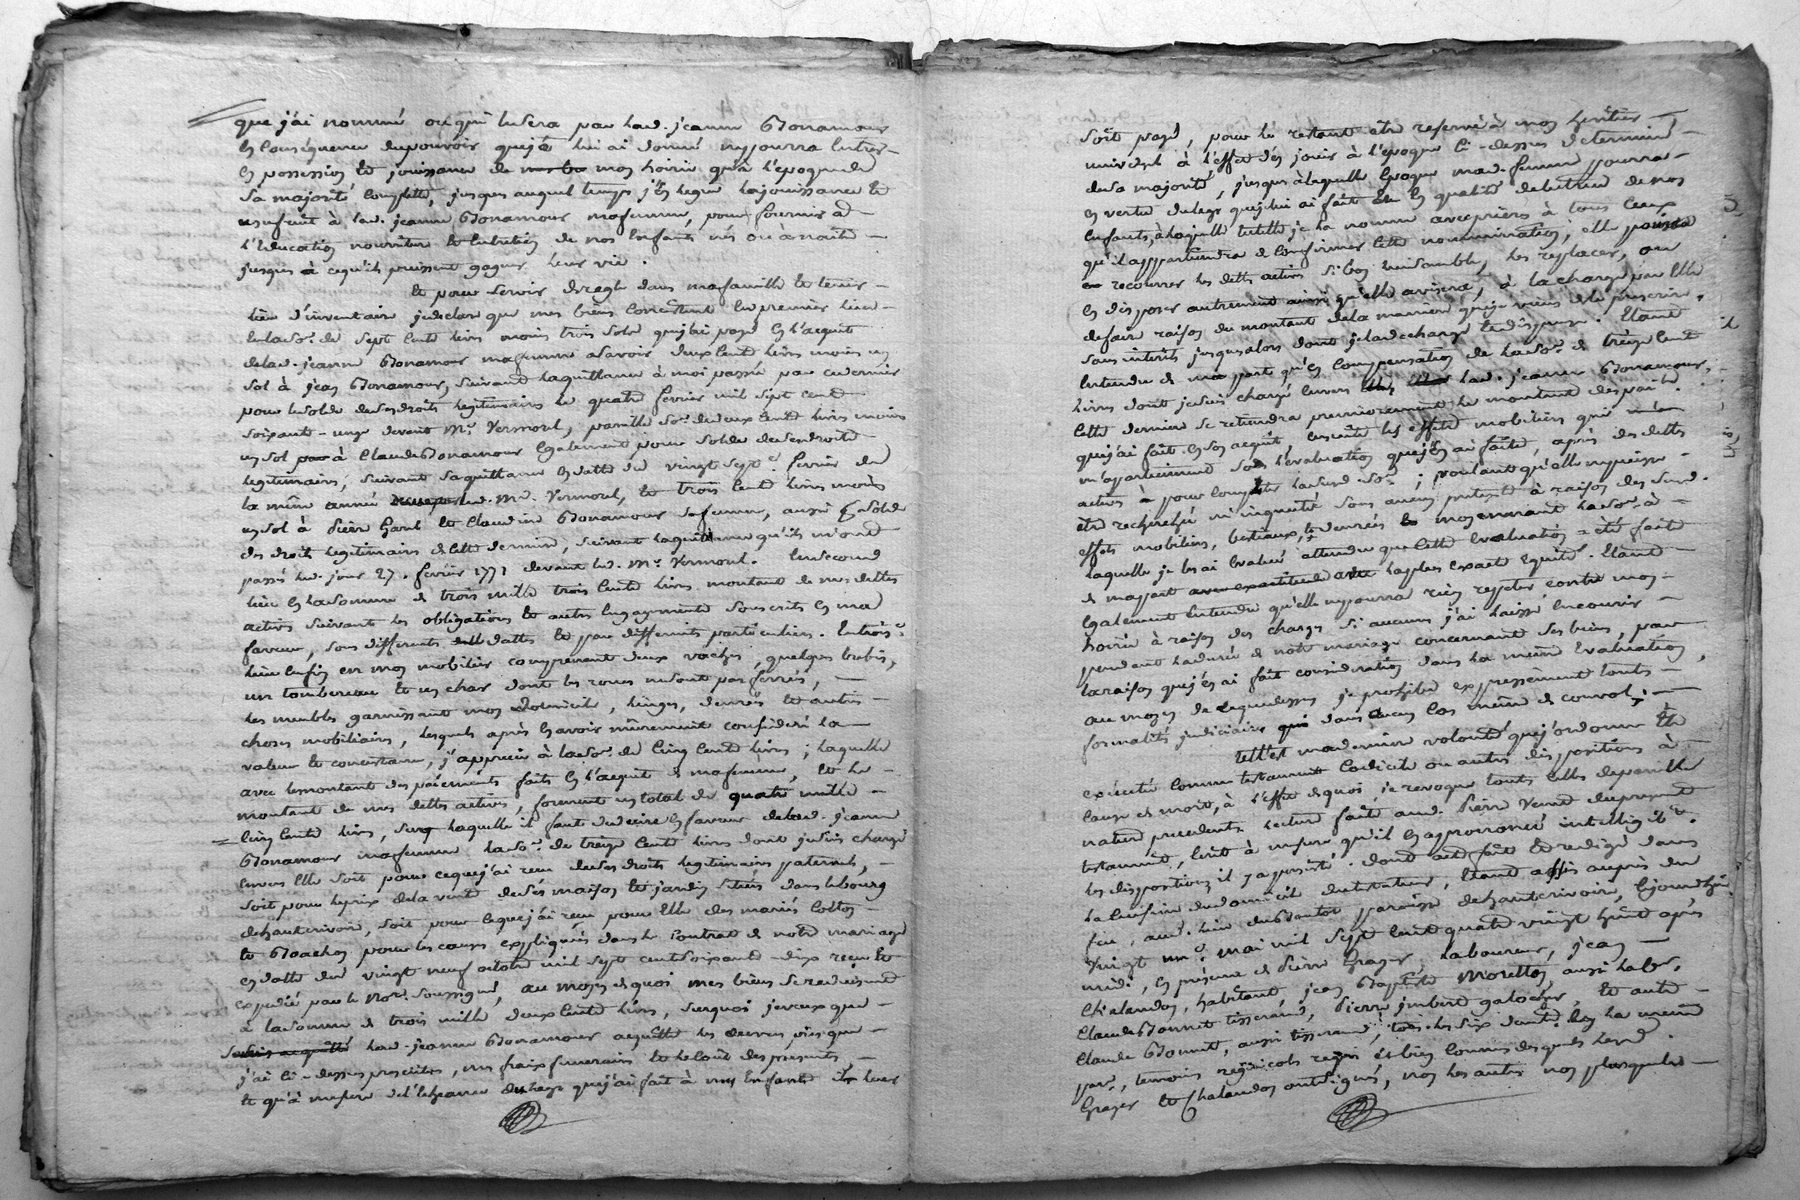 que j'ai nommé ou qui le sera par lad. jeanne Bonnamour
En Conséquence du pouvoir que je lui ai donné ne pourra Entrer
En possession et jouissance de mon hoirie qu'à l'époque de
sa majorité Complette, jusques auquel temps j'En legue la jouissance et
usufruit à lad. jeanne Bonnamour ma femme, pour fournir à
l'Education nourriture et Entretien de nos Enfants nés ou à naitre
jusques à ce qu'ils puissent gagner leur vie.
Et pour servir de regle dans ma famille et tenir
lieu d'inventaire je declare que mes biens Consistent En premier lieu
En la So.e de Sept Cents livres moins trois sols que j'ai payé En l'acquit
de lad. jeanne Bonnamour ma femme a savoir deux Cents livres moins un
sol à jean Bonnamour, suivant la quittance à moi passée par ce dernier
pour le solde de ses droits legitimaires le quatre fevrier mil sept cent
soixante-onze devant Mr. Vermorel, pareille So.e de deux Cents livres moins
un sol à Claude Bonnamour Egalement pour solde de ses droits
legitimaires, suivant sa quittance En datte du vingt sept fevrier de
la même année led. Mr. Vermorel, et trois Cents livres moins
un sol à Pierre et Claudine Bonnamour sa femme, aussi p. solde
des droits legitimaires de cette derniere, suivant la quittance qu'ils m'ont
passée led. jour 27. fevrier 1771 devant led. Mr. Vermorel. En second
lieu En la Somme de trois mille trois Cents livres montant de mes dettes
actives suivant les obligations et autres Engagements souscrits En ma
faveur, sous differentes dattes et par differents particuliers. En trois.e
lieu Enfin en mon mobilier comprenant deux vaches, quelques brebis,
un tombereau et un char dont les roues ne sont pas ferrées,
les meubles garnissant mon Domicile, linges, denrées et autres
choses mobiliaires, lesquels après En avoir mûrement consideré la
valeur et consistance, j'apprecie à la So.e de Cinq Cents livres; laquelle
avec le montant des paiements faits En l'acquit de ma femme, et le
montant de mes dettes actives, forment un total de quatre mille
Cinq Cents livres, sur laquelle il faut deduire En faveur de lad. jeanne
Bonnamour ma femme la So.e de treize Cents livres dont je suis chargé
Envers Elle soit pour ce que j'ai reçu de ses droits legitimaires paternels,
soit pour le prix de la vente de ses maison et jardin situés dans le bourg
de hauterivoire, soit pour ce que j'ai reçu pour Elle des mariés
et pour les causes expliquées dans le Contrat de notre mariage
en datte du vingt neuf octobre mil sept cent soixante-dix reçu et
expedié par le Not.e soussigné, au moyen de quoi mes biens se reduisent
à la somme de trois mille deux Cents livres, surquoi je veux que
lad. jeanne Bonnamour acquitte les œuvres pies que
j'ai Ci-dessus prescrites, mes frais funeraires et le coût des presentes
et qu'à mesure de l'Echeance du legs que j'ai fait à mes Enfants il leur
soit payé, pour le restant être reservé à mon heritier
universel à l'effet d'En jouir à l'époque Ci-dessus determinée
de sa majorité, jusques à laquelle Epoque mad. femme pourra
En vertu du legs que je lui ai fait En qualité de tutrice de nos
Enfants, à laquelle tutelle je la nomme avec prieres à tous Ceux
qu'il appartiendra de Confirmer Cette nommination, elle pourra
recouvrer les dettes actives Si bon lui semble, les replacer, ou
En disposer autrement ainsi qu'elle avisera, à la charge par Elle
de faire raison du montant de la maniere que je viens de le prescrire,
sans interets jusqu'alors dont je la decharge et dispense. Etant
Entendu de ma part qu'En Compensation de la So.e de treize Cents
livres dont je suis chargé Envers lad. jeanne Bonnamour,
Cette derniere se retiendra premierement le montant des paiem.
que j'ai fait En son acquit, ensuite les effets mobiliers qui
m'appartiennent Sous l'évaluation que j'En ai faite, après des dettes
actives à pour Completter lasusd. So.e; voulant qu'elle ne puisse
être recherchée ni inquietée Sous aucun pretexte à raison des Susd.
effets mobiliers, bestiaux, et denrées moyennant la So.e à
laquelle je les ai Evalués attendu que Cette Evaluation a été faite
de ma part la plus exacte Equité. Etant
Egalement Entendu qu'elle ne pourra rien repeter contre mon
hoirie à raison des charges Si aucunes j'ai laissé Encourir
pendant la durée de notre mariage concernant ses biens, par
la raison que j'En ai fait consideration dans la même Evaluation,
au moyen de ce que dessus je prohibe expressément toutes
formalités judiciaires dans aucun Cas même de convol;
telle est ma derniere volonté que j'ordonne être
exécutée Comme testament Codicile ou autres dispositions à
Cause de mort, à l'effet de quoi je revoque toutes Celles de pareille
nature precedentes. lecture faite aud. Pierre Venet du present
testament, Ecrit à mesure qu'il En a prononcé intelligibt.
les dispositions il y a persisté. Dont acte fait Et redigé dans
la Cuisine du domicile du testateur, Etant assis auprès du
feu, aud. lieu paroisse de hauterivoire, Cejourd'hui
Vingt un.e mai mil sept cent quatre vingt huit après
midi, En presence de Pierre Grazer, laboureur, jean
Chalandon, habitant, jean Baptiste Moretton aussi labor.
Claude Bonnet tisserand, Pierre imbert galocher, Et autre
Claude Bonnet, aussi tisserand, tous les six demts. En la même
par., temoins regnicoles requis Et bien Connus desquels lesd.
Grazer et Chalandon ont signés, non les autres non plus que le